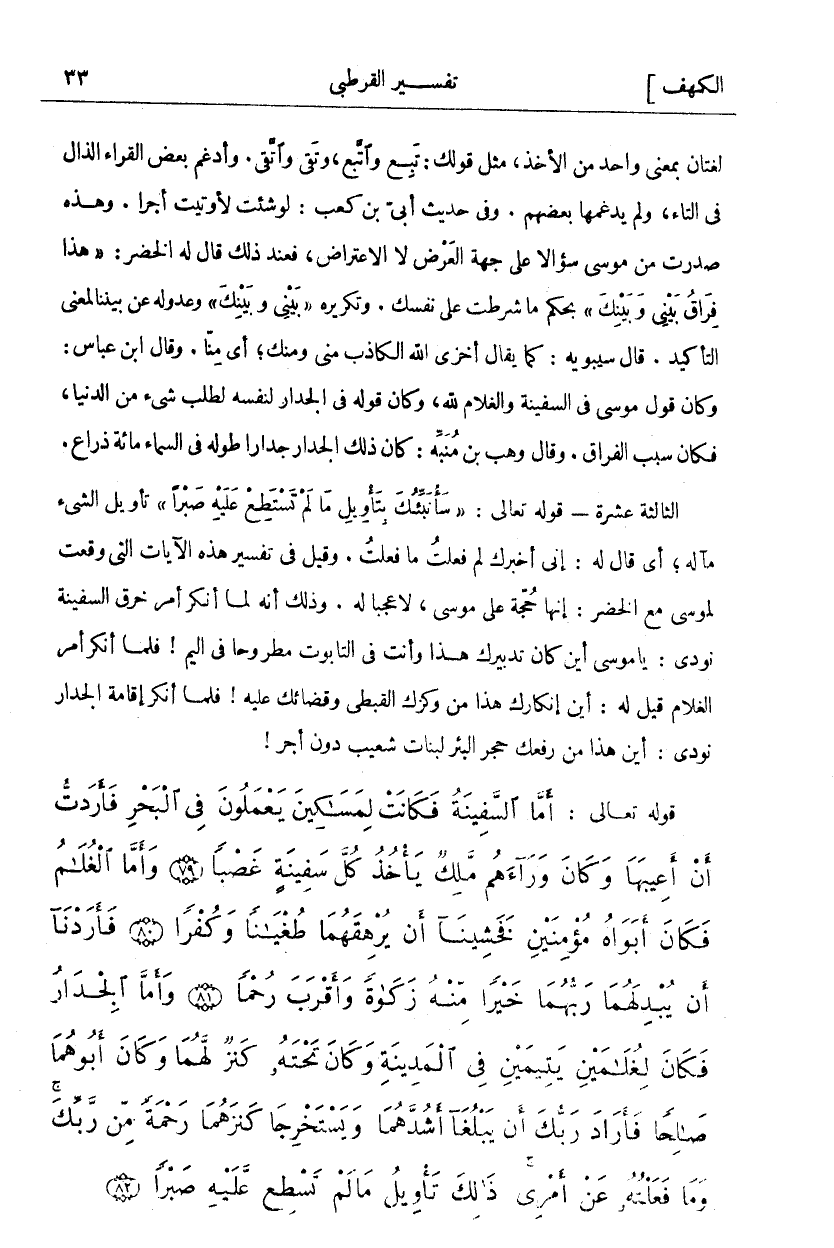 الكهف ] تفسير القرطبى ٣٣
لغتان بمعنى واحد من الأخذ، مثل قولك: تَبِع وٱتَّبع، وتَقى وٱتَّقى. وأدغم بعض القراء الذال
فى التاء، ولم يدغمها بعضهم . وفى حديث أبىّ بن كعب : لوشئت لأوتيت أجرا . وهذه
صدرت من موسى سؤالا على جهة العَرْض لا الاعتراض، فعند ذلك قال له الخضر: « هذا
فِرَاقُ بَيْنِى وَبَيْنِكَ » بحكم ما شرطت على نفسك . وتكريره « بَيْنِى و بَيْنِكَ» وعدوله عن بيننا لمعنى
التأكيد . قال سيبويه : كما يقال أخزى الله الكاذب منى ومنك؛ أى مِنّا . وقال ابن عباس :
وكان قول موسى فى السفينة والغلام لله، وكان قوله فى الجدار لنفسه لطلب شىء من الدنيا،
فكان سبب الفراق . وقال وهب بن مُنَبِّه : كان ذلك الجدار جدارا طوله فى السماء مائة ذراع .
الثالثة عشرة – قوله تعالى : « سَأُنَبِّئُكَ بِتَأْوِيلِ مَا لَمْ تَسْتَطِعْ عَلَيْهِ صَبْرًا » تأويل الشىء
مآله؛ أى قال له : إنى أخبرك لم فعلتُ ما فعلتُ . وقيل فى تفسير هذه الآيات التى وقعت
لموسى مع الخضر : إنها حُجّة على موسى ، لاعجبا له . وذلك أنه لما أنكر أمر خرق السفينة
نودى : ياموسى أين كان تدبيرك هذا وأنت فى التابوت مطروحا فى اليم ! فلما أنكر أمر
الغلام قيل له : أين إنكارك هذا من وكزك القبطى وقضائك عليه ! فلما أنكر إقامة الجدار
نودى : أين هذا من رفعك حجر البئر لبنات شعيب دون أجر !
قوله تعالى : أَمَّا ٱلسَّفِينَةُ فَكَانَتْ لِمَسَـٰكِينَ يَعْمَلُونَ فِى ٱلْبَحْرِ فَأَرَدتُّ
أَنْ أَعِيبَهَا وَكَانَ وَرَآءَهُم مَّلِكٌ يَأْخُذُ كُلَّ سَفِينَةٍ غَصْبًا ٧٩ وَأَمَّا ٱلْغُلَـٰمُ
فَكَانَ أَبَوَاهُ مُؤْمِنَيْنِ فَخَشِينَآ أَن يُرْهِقَهُمَا طُغْيَـٰنًا وَكُفْرًا ٨٠ فَأَرَدْنَآ
أَن يُبْدِلَهُمَا رَبُّهُمَا خَيْرًا مِّنْهُ زَكَوٰةً وَأَقْرَبَ رُحْمًا ٨١ وَأَمَّا ٱلْجِدَارُ
فَكَانَ لِغُلَـٰمَيْنِ يَتِيمَيْنِ فِى ٱلْمَدِينَةِ وَكَانَ تَحْتَهُۥ كَنزٌ لَّهُمَا وَكَانَ أَبُوهُمَا
صَـٰلِحًا فَأَرَادَ رَبُّكَ أَن يَبْلُغَآ أَشُدَّهُمَا وَيَسْتَخْرِجَا كَنزَهُمَا رَحْمَةً مِّن رَّبِّكَ ۚ
وَمَا فَعَلْتُهُۥ عَنْ أَمْرِى ۚ ذَٰلِكَ تَأْوِيلُ مَالَمْ تَسْطِع عَّلَيْهِ صَبْرًا ٨٢